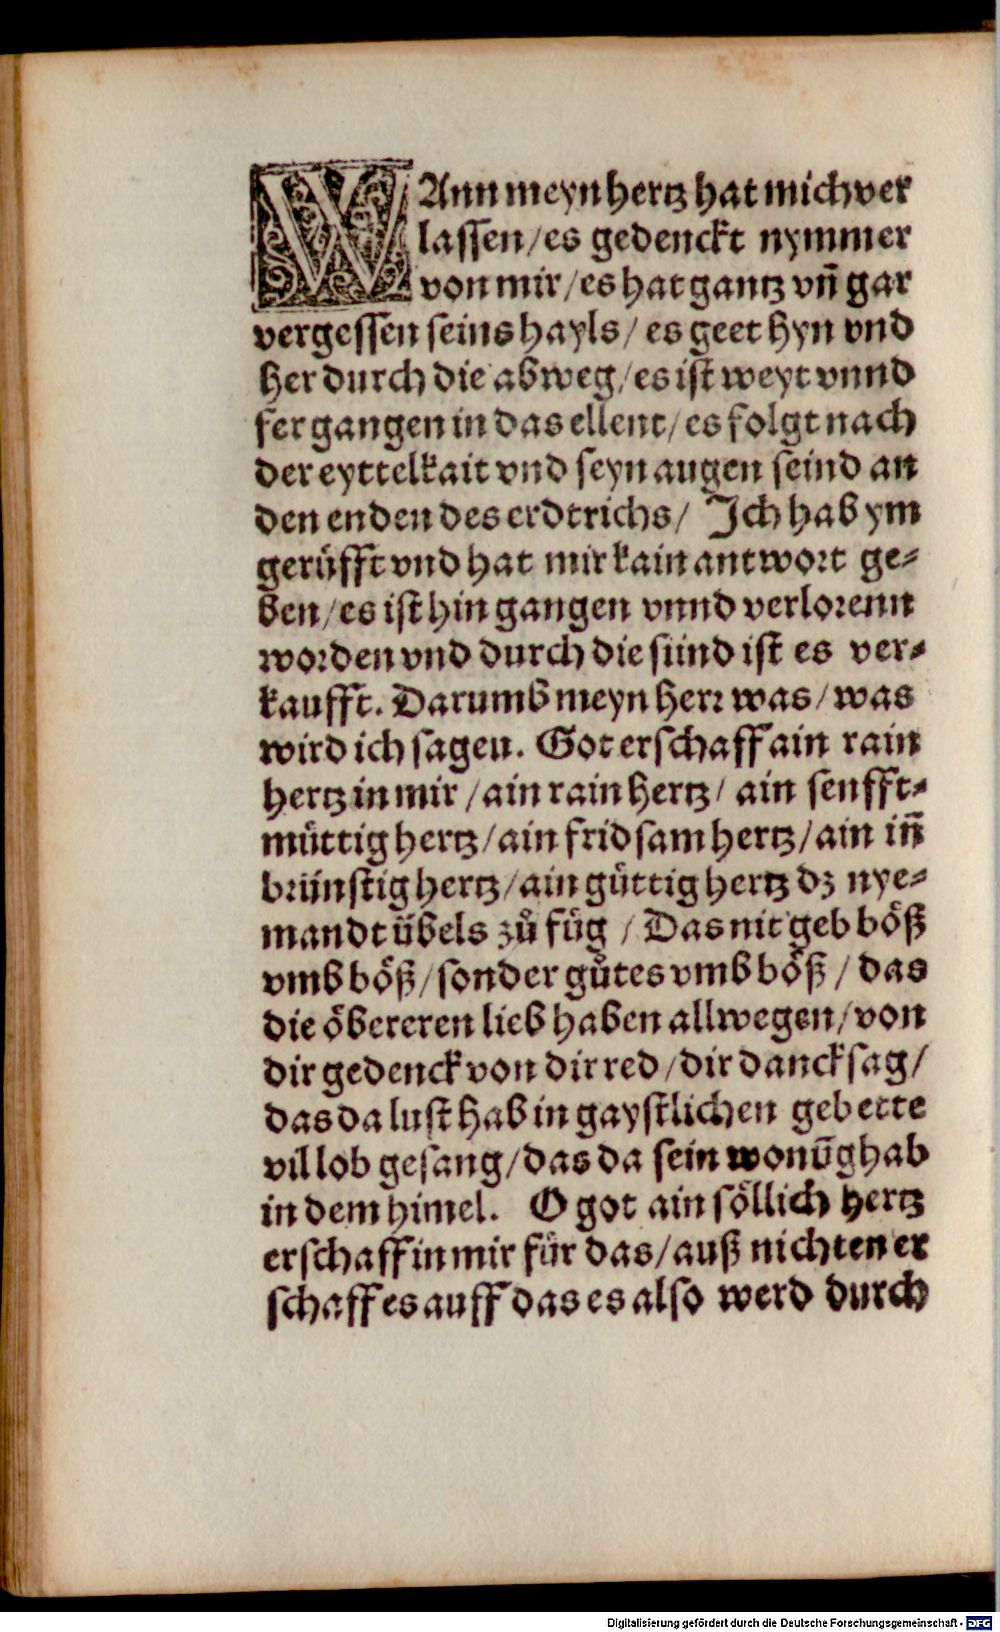 WAnn meyn hertz hat mich ver
lassen/es gedenckt nymmer
von mir/es hat gantz vn̄ gar
vergessen seins hayls/ es geet hyn vnd
her durch die abweg/es ist weyt vnnd
fer gangen in das ellent/es folgt nach
der eyttelkait vnd seyn augen seind an
den enden des erdtrichs/ Ich hab ym
geruͤfft vnd hat mir kain antwort ge⸗
ben/es ist hin gangen vnnd verlorenn
worden vnd durch die sünd ist es ver⸗
kaufft. Darumb meyn herr was/was
wird ich sagen. Got erschaff ain rain
hertz in mir/ain rain hertz/ ain senfft⸗
muͤttig hertz/ain fridsam hertz/ain in̄
brünstig hertz/ain guͤttig hertz dz nye⸗
mandt übels zuͦ fuͤg / Das nit geb boͤß
vmb boͤß/sonder guͦtes vmb boͤß/ das
die oͤbereren lieb haben allwegen/von
dir gedenck von dir red/dir danck sag/
das da lust hab in gaystlichen gebette
vil lob gesang/das da sein wonūg hab
in dem himel. O got ain soͤllich hertz
erschaff in mir für das/auß nichten er
schaff es auff das es also werd durch
Digitalisierung gefördert durch die Deutsche Forschungsgemeinschaft - DFG